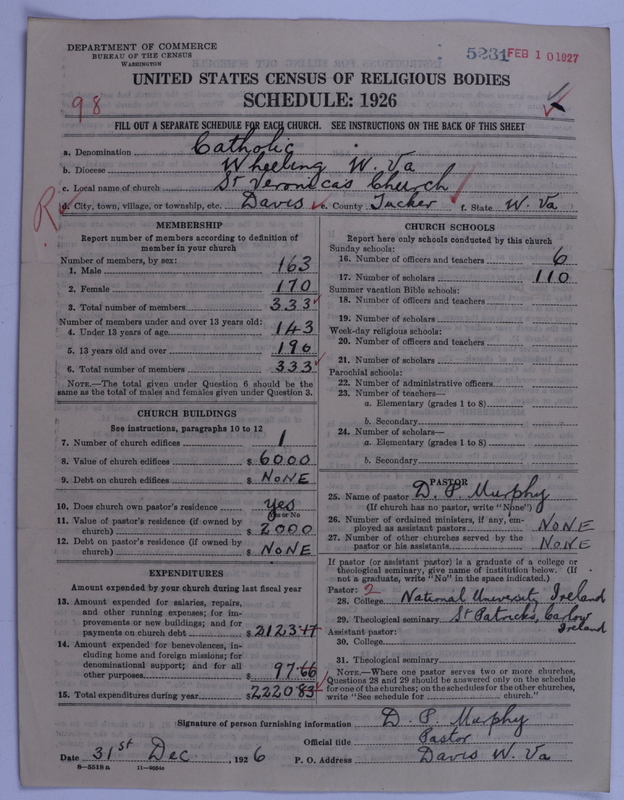 DEPARTMENT OF COMMERCE
BUREAU OF THE CENSUS
WASHINGTON
5231 FEB 10 1927
UNITED STATES CENSUS OF RELIGIOUS BODIES
98
SCHEDULE: 1926
FILL OUT A SEPARATE SCHEDULE FOR EACH CHURCH. SEE INSTRUCTIONS ON THE BACK OF THIS SHEET
a. Denomination Catholic
b. Diocese Wheeling W. Va
c. Local name of church St Veronica's Church
R
d. City, town, village, or township, etc. Davis e. County Tucker f. State W. Va
MEMBERSHIP
Report number of members according to definition of
member in your church
Number of members, by sex:
1. Male 163
2. Female 170
3. Total number of members 333
Number of members under and over 13 years old:
4. Under 13 years of age 143
5. 13 years old and over 190
6. Total number of members 333
NOTE.—The total given under Question 6 should be the
same as the total of males and females given under Question 3.
CHURCH BUILDINGS
See instructions, paragraphs 10 to 12
7. Number of church edifices 1
8. Value of church edifices $ 6000
9. Debt on church edifices $ NONE
10. Does church own pastor's residence yes
Yes or No
11. Value of pastor's residence (if owned by
church) $ 2000
12. Debt on pastor's residence (if owned by
church) $ NONE
EXPENDITURES
Amount expended by your church during last fiscal year
13. Amount expended for salaries, repairs,
and other running expenses; for im-
provements or new buildings; and for
payments on church debt $ 2123 17
14. Amount expended for benevolences, in-
cluding home and foreign missions; for
denominational support; and for all
other purposes $ 97 66
15. Total expenditures during year $ 2220 83
CHURCH SCHOOLS
Report here only schools conducted by this church
Sunday schools:
16. Number of officers and teachers 6
17. Number of scholars 110
Summer vacation Bible schools:
18. Number of officers and teachers
19. Number of scholars
Week-day religious schools:
20. Number of officers and teachers
21. Number of scholars
Parochial schools:
22. Number of administrative officers
23. Number of teachers—
a. Elementary (grades 1 to 8)
b. Secondary
24. Number of scholars—
a. Elementary (grades 1 to 8)
b. Secondary
PASTOR
25. Name of pastor D. P. Murphy
(If church has no pastor, write "None")
26. Number of ordained ministers, if any, em-
ployed as assistant pastors NONE
27. Number of other churches served by the
pastor or his assistants NONE
If pastor (or assistant pastor) is a graduate of a college or
theological seminary, give name of institution below. (If
not a graduate, write "No" in the space indicated.)
Pastor: 2
28. College National University Ireland
29. Theological seminary St Patricks, Carlow
Ireland
Assistant pastor:
30. College
31. Theological seminary
NOTE.—Where one pastor serves two or more churches,
Questions 28 and 29 should be answered only on the schedule
for one of the churches; on the schedules for the other churches,
write "See schedule for church."
Signature of person furnishing information D. P. Murphy
Official title Pastor
Date 31st Dec, 1926 P. O. Address Davis W. Va
8—5518 a